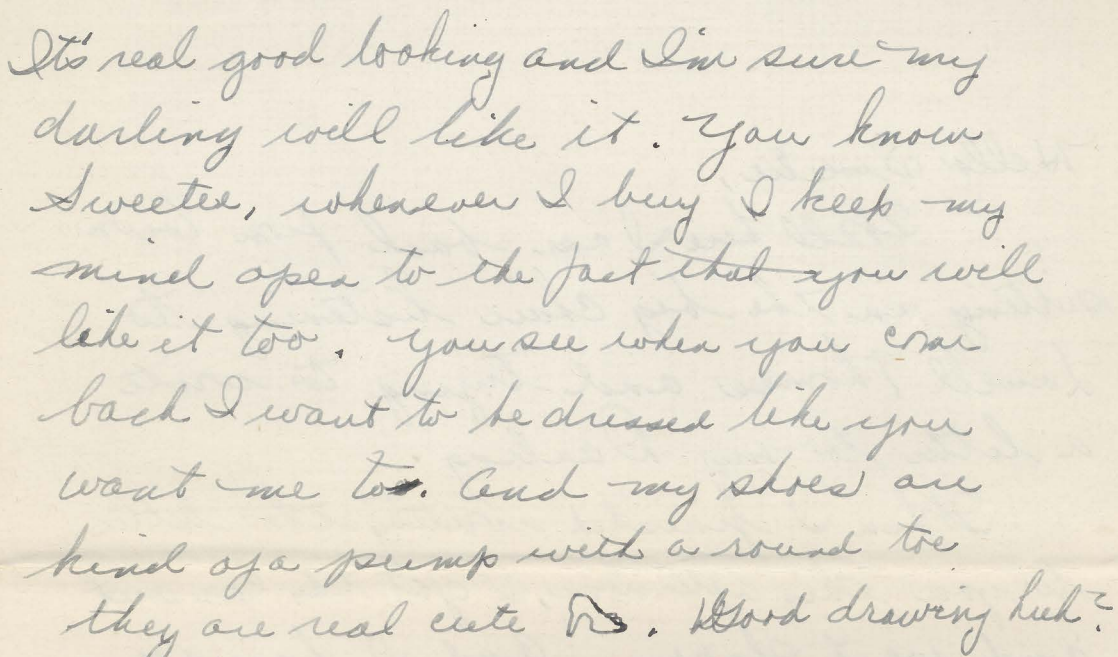 It's real good looking and I'm sure my
darling will like it. You know
Sweetie, whenever I buy I keep my
mind open to the fact that you will
like it too. You see when you come
back I want to be dressed like you
want me to. And my shoes are
kind of a pump with a round toe
they are real cute. Good drawing huh?